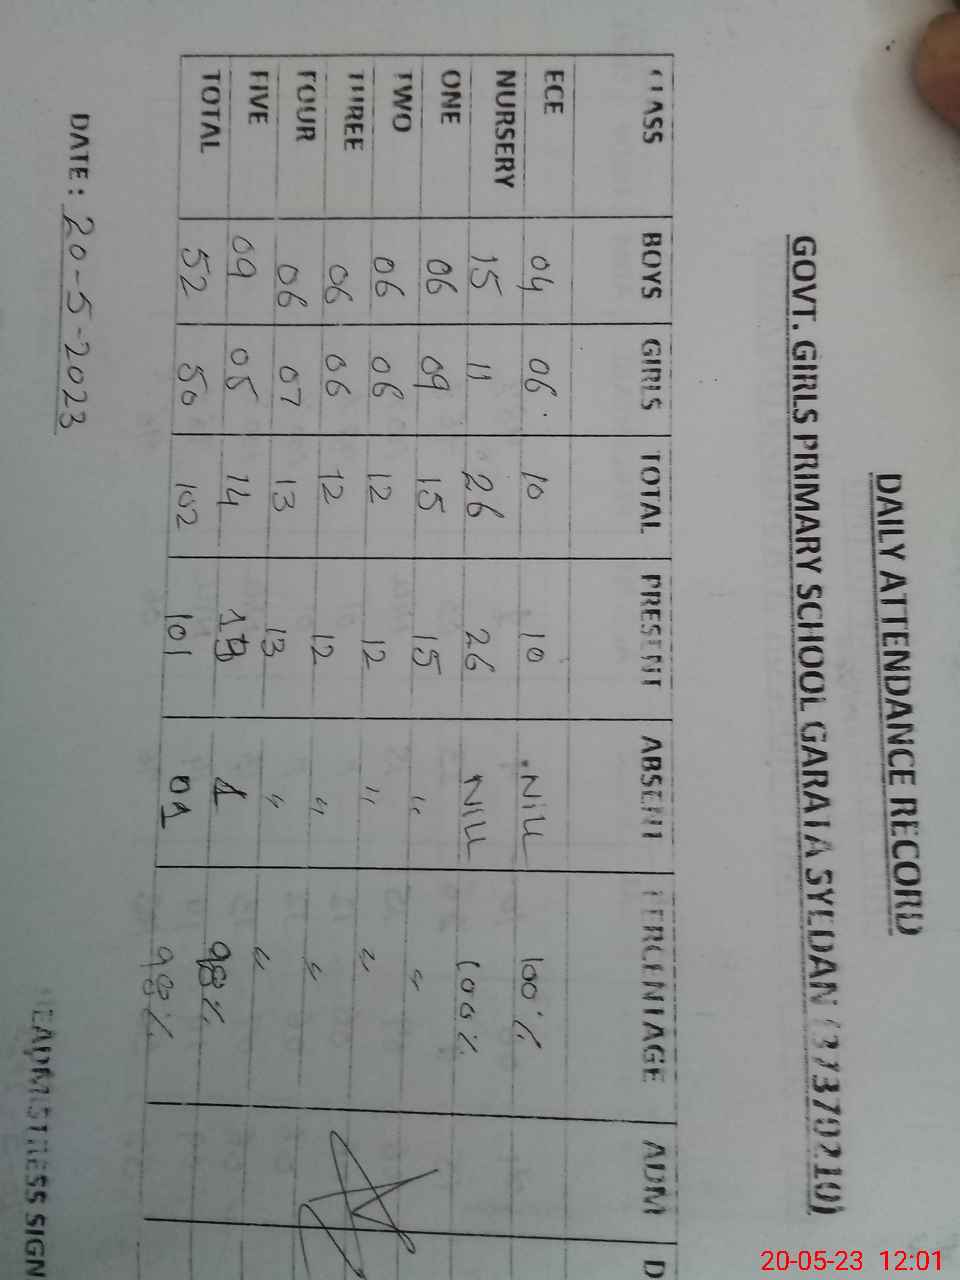 DAILY ATTENDANCE RECORD
GOVT. GIRLS PRIMARY SCHOOL GARATA SYEDAN (37370210)
CLASS BOYS GIRLS TOTAL PRESENT ABSENT PERCENTAGE ADM D
ECE 04 06 10 10 Nill 100%
NURSERY 15 11 26 26 Nill 100%
ONE 06 09 15 15 " "
TWO 06 06 12 12 " "
THREE 06 06 12 12 " "
FOUR 06 07 13 13 " "
FIVE 09 05 14 1 98%
TOTAL 52 50 102 101 01 98%
DATE: 20-5-2023
HEADMISTRESS SIGN
20-05-23 12:01